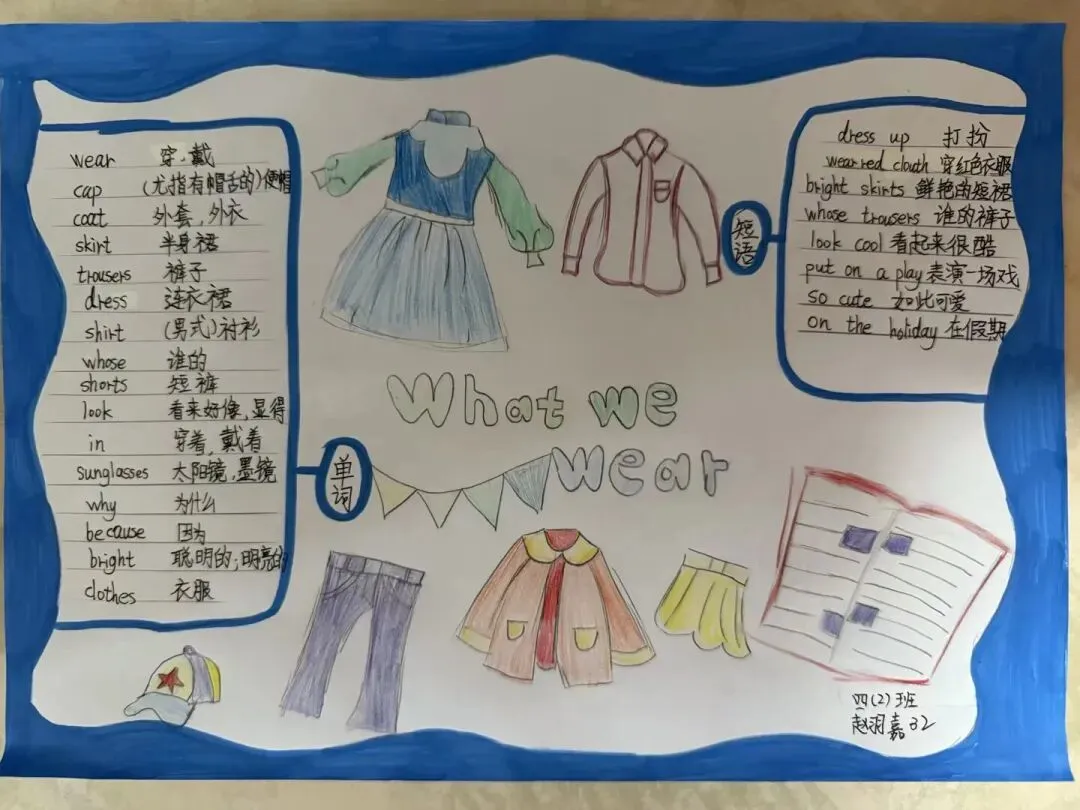 wear 穿、戴
cap (尤指有帽舌的)便帽
coat 外套,外衣
skirt 半身裙
trousers 裤子
dress 连衣裙
shirt (男式)衬衫
whose 谁的
shorts 短裤
look 看来好像,显得
in 穿着,戴着
sunglasses 太阳镜,墨镜
why 为什么
because 因为
bright 聪明的;明亮的
clothes 衣服
单词
What we
wear
短语
dress up 打扮
wear red clouth 穿红色衣服
bright skirts 鲜艳的短裙
whose trousers 谁的裤子
look cool 看起来很酷
put on a play 表演一场戏
so cute 如此可爱
on the holiday 在假期
四(2)班
赵羽嘉32